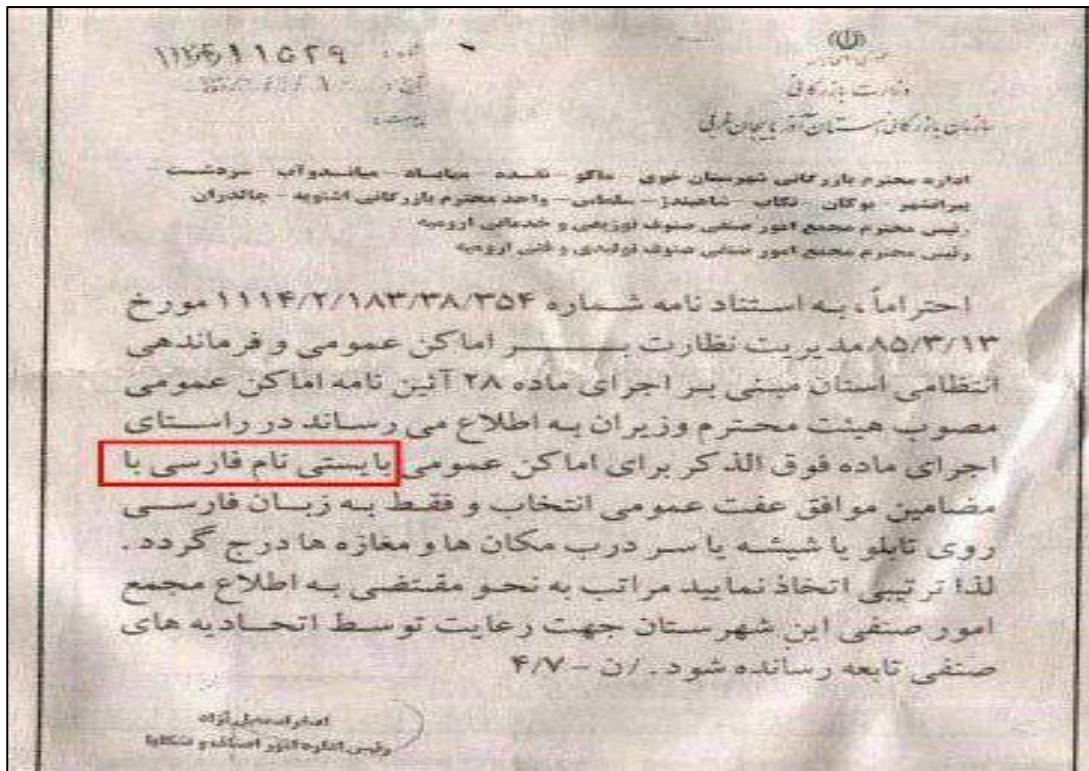 وزارت بازرگانی
سازمان بازرگانی استان آذربایجان غربی
اداره محترم بازرگانی شهرستان خوی - ماکو - نقده - مهاباد - میاندوآب - سردشت -
پیرانشهر - بوکان - تکاب - شاهیندژ - سلماس - واحد محترم بازرگانی اشنویه - چالدران
رئیس محترم مجمع امور صنفی صنوف توزیعی و خدماتی ارومیه
رئیس محترم مجمع امور صنفی صنوف تولیدی و فنی ارومیه
احتراماً، به استناد نامه شماره ۱۱۱۴/۲/۱۸۳/۳۸/۳۵۴ مورخ
۸۵/۳/۱۳ مدیریت نظارت بر اماکن عمومی و فرماندهی
انتظامی استان مبنی بر اجرای ماده ۲۸ آئین نامه اماکن عمومی
مصوب هیئت محترم وزیران به اطلاع می رساند در راستای
اجرای ماده فوق الذکر برای اماکن عمومی بایستی نام فارسی با
مضامین موافق عفت عمومی انتخاب و فقط به زبان فارسی
روی تابلو یا شیشه یا سر درب مکان ها و مغازه ها درج گردد.
لذا ترتیبی اتخاذ نمایید مراتب به نحو مقتضی به اطلاع مجمع
امور صنفی این شهرستان جهت رعایت توسط اتحادیه های
صنفی تابعه رسانده شود./ن -۴/۷
رئیس اداره امور اصناف و